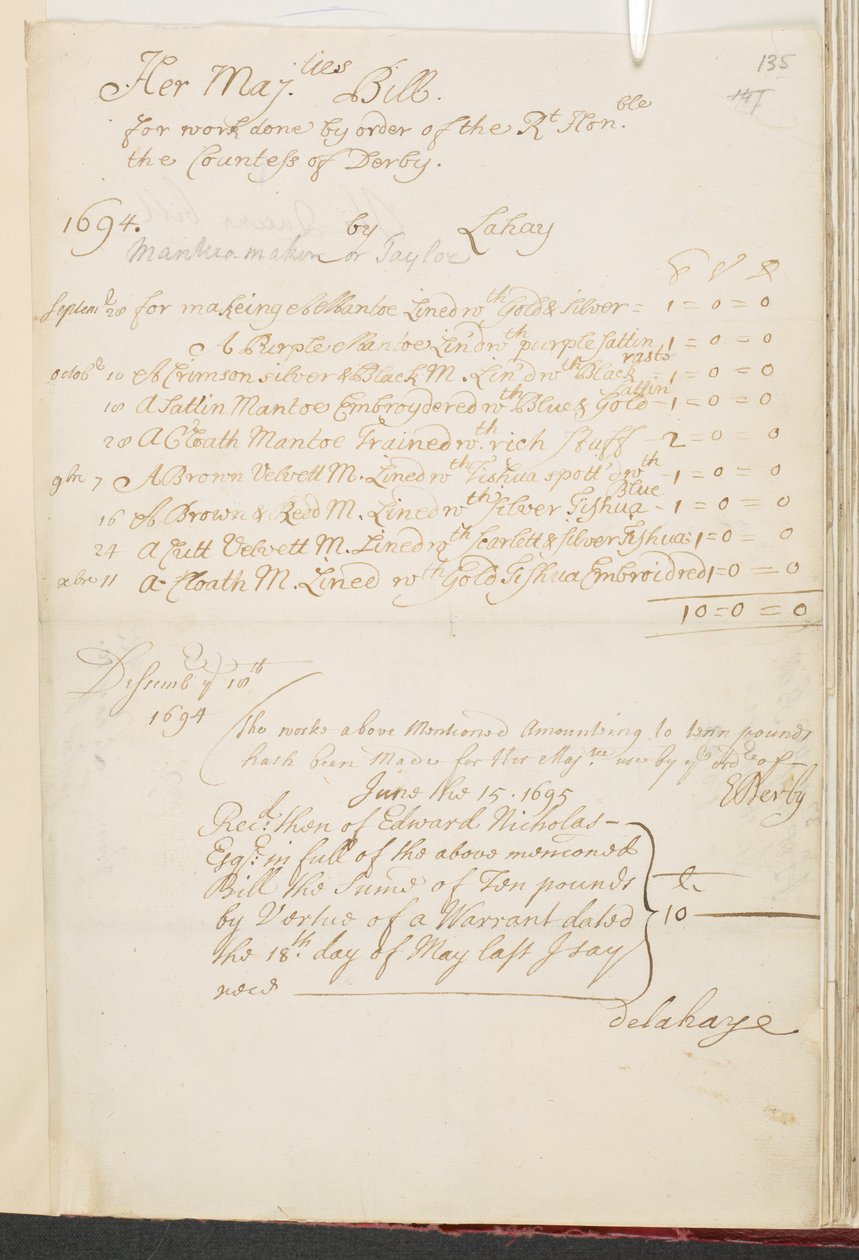 135
147
Her Maj.ties Bill.
for work done by order of the Rt Hon.ble
the Countess of Derby.
1694. by Lahay
Mantua maker or Taylor
Septemr 28 for makeing A Mantoe Lined wth Gold & Silver = 1 = 0 = 0
A Purple Mantoe Lin'd wth purple Sattin 1 = 0 = 0
octobr 10 A Crimson silver & Black M. Lin'd wth Black rasto = 1 = 0 = 0
18 A Sattin Mantoe Embroydered wth Blue & Gold Sattin - 1 = 0 = 0
28 A Cloath Mantoe Trained wth rich Stuff - 2 = 0 = 0
9br 7 A Brown Velvett M. Lined wth Tishua spott'd wth Blue - 1 = 0 = 0
16 A Brown & Redd M. Lined wth Silver Tishua - 1 = 0 = 0
24 A Cutt Velvett M. Lined wth Scarlett & Silver Tishua = 1 = 0 = 0
xbr 11 A Cloath M. Lined wth Gold Tishua Embroidred 1 = 0 = 0
10 = 0 = 0
Dessembr ye 18th
1694
The worke above Mentioned Amounting to tenn pounds
hath been Made for Her Majties use by ye ordr of
EDerby
June the 15. 1695
Recd. then of Edward Nicholas
Esqr. in full of the above mencioned
Bill the Sume of Ten pounds
by Vertue of a Warrant dated
the 18th. day of May last I say
recd
l.
10
delahaye